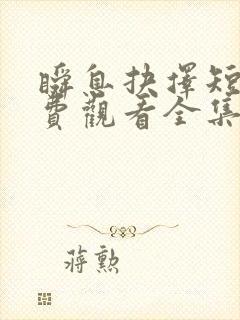 瞬息抉擇短
費觀看全集
蔣勲